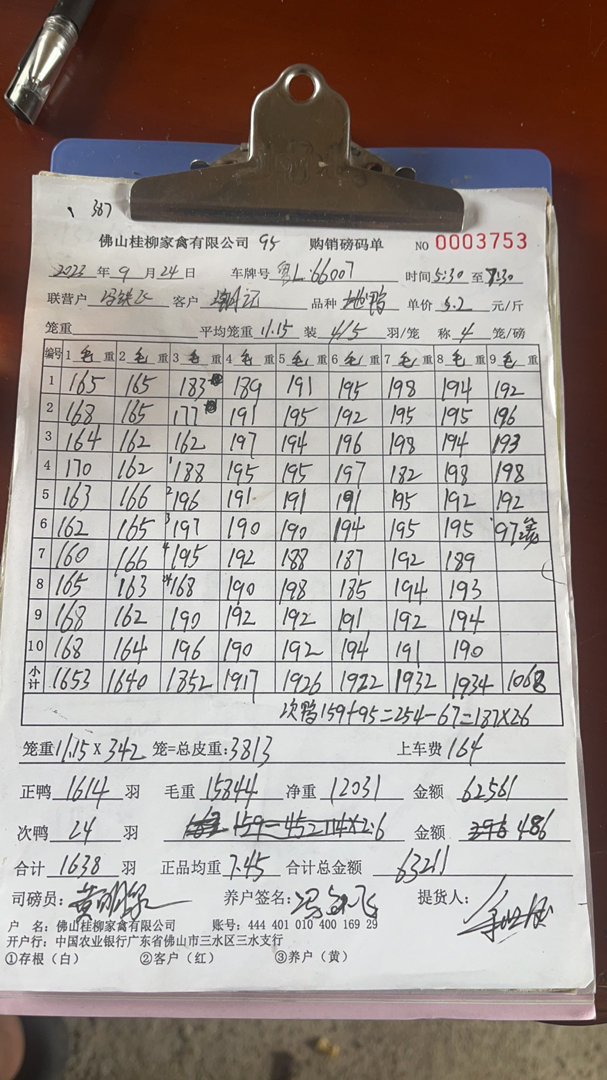 367
佛山桂柳家禽有限公司 95 购销磅码单 NO 0003753
2023 年 9 月 24 日 车牌号 粤L·66007 时间 5:30 至 7:30
联营户 冯铁飞 客户 品种 地鸭 单价 5.2 元/斤
笼重 平均笼重 11.15 装 4/5 羽/笼 称 4 笼/磅
编号 1 毛 重 2 毛 重 3 毛 重 4 毛 重 5 毛 重 6 毛 重 7 毛 重 8 毛 重 9 毛 重
1 165 165 183 189 191 195 198 194 192
2 168 165 177 191 195 192 195 195 196
3 164 162 162 197 194 196 198 194 193
4 170 162 188 195 195 197 182 198 198
5 163 166 196 191 191 191 195 192 192
6 162 165 197 190 190 194 195 195 97 2笼
7 160 166 195 192 188 187 192 189
8 165 163 168 190 198 185 194 193
9 168 162 190 192 192 191 192 194
10 168 164 196 190 192 194 191 190
小计 1653 1640 1852 1917 1926 1922 1932 1934 1068
次鸭 159+95=254-67=187×2.6
笼重 11.15 × 342 笼=总皮重: 3813 上车费 164
正鸭 1614 羽 毛重 15844 净重 12031 金额 62561
次鸭 24 羽 159-45=114×2.6 金额 296 486
合计 1638 羽 正品均重 7.45 合计总金额 63211
司磅员: 养户签名: 提货人:
户 名: 佛山桂柳家禽有限公司 账号: 444 401 010 400 169 29
开户行: 中国农业银行广东省佛山市三水区三水支行
①存根(白) ②客户(红) ③养户(黄)